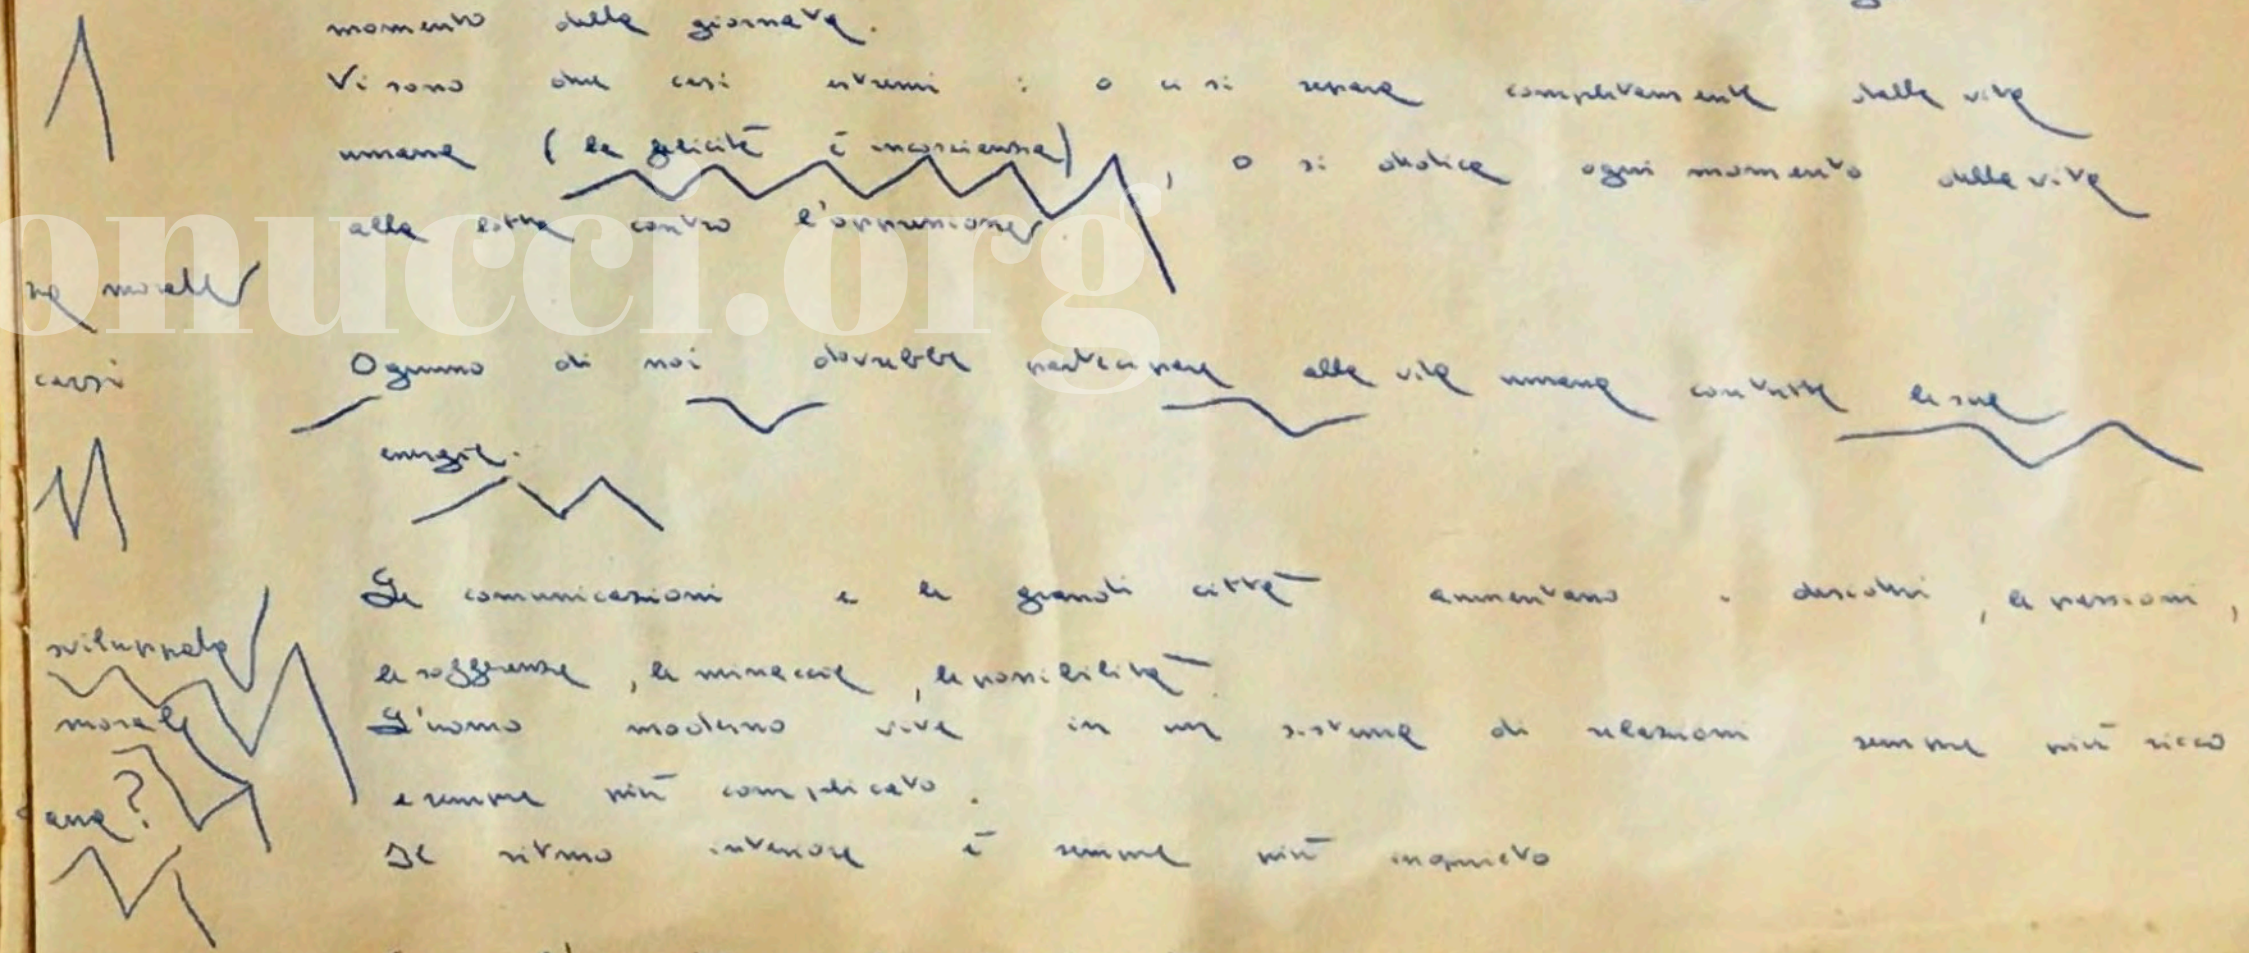 momento della giornata.
Vi sono due casi estremi : o ci si separa completamente dalla vita
umana (la felicità è incoscienza), o si dedica ogni momento della vita
alla lotta contro l'oppressione.
onucci.org
morale
carsi
Ognuno di noi dovrebbe partecipare alla vita umana con tutte le sue
energie.
Le comunicazioni e le grandi città aumentano i desideri, le passioni,
le sofferenze, le minaccie, le possibilità.
sviluppata
L'uomo moderno vive in un sistema di relazioni sempre più ricco
morale
e sempre più complicato.
ana?
Il ritmo interiore è sempre più inquieto